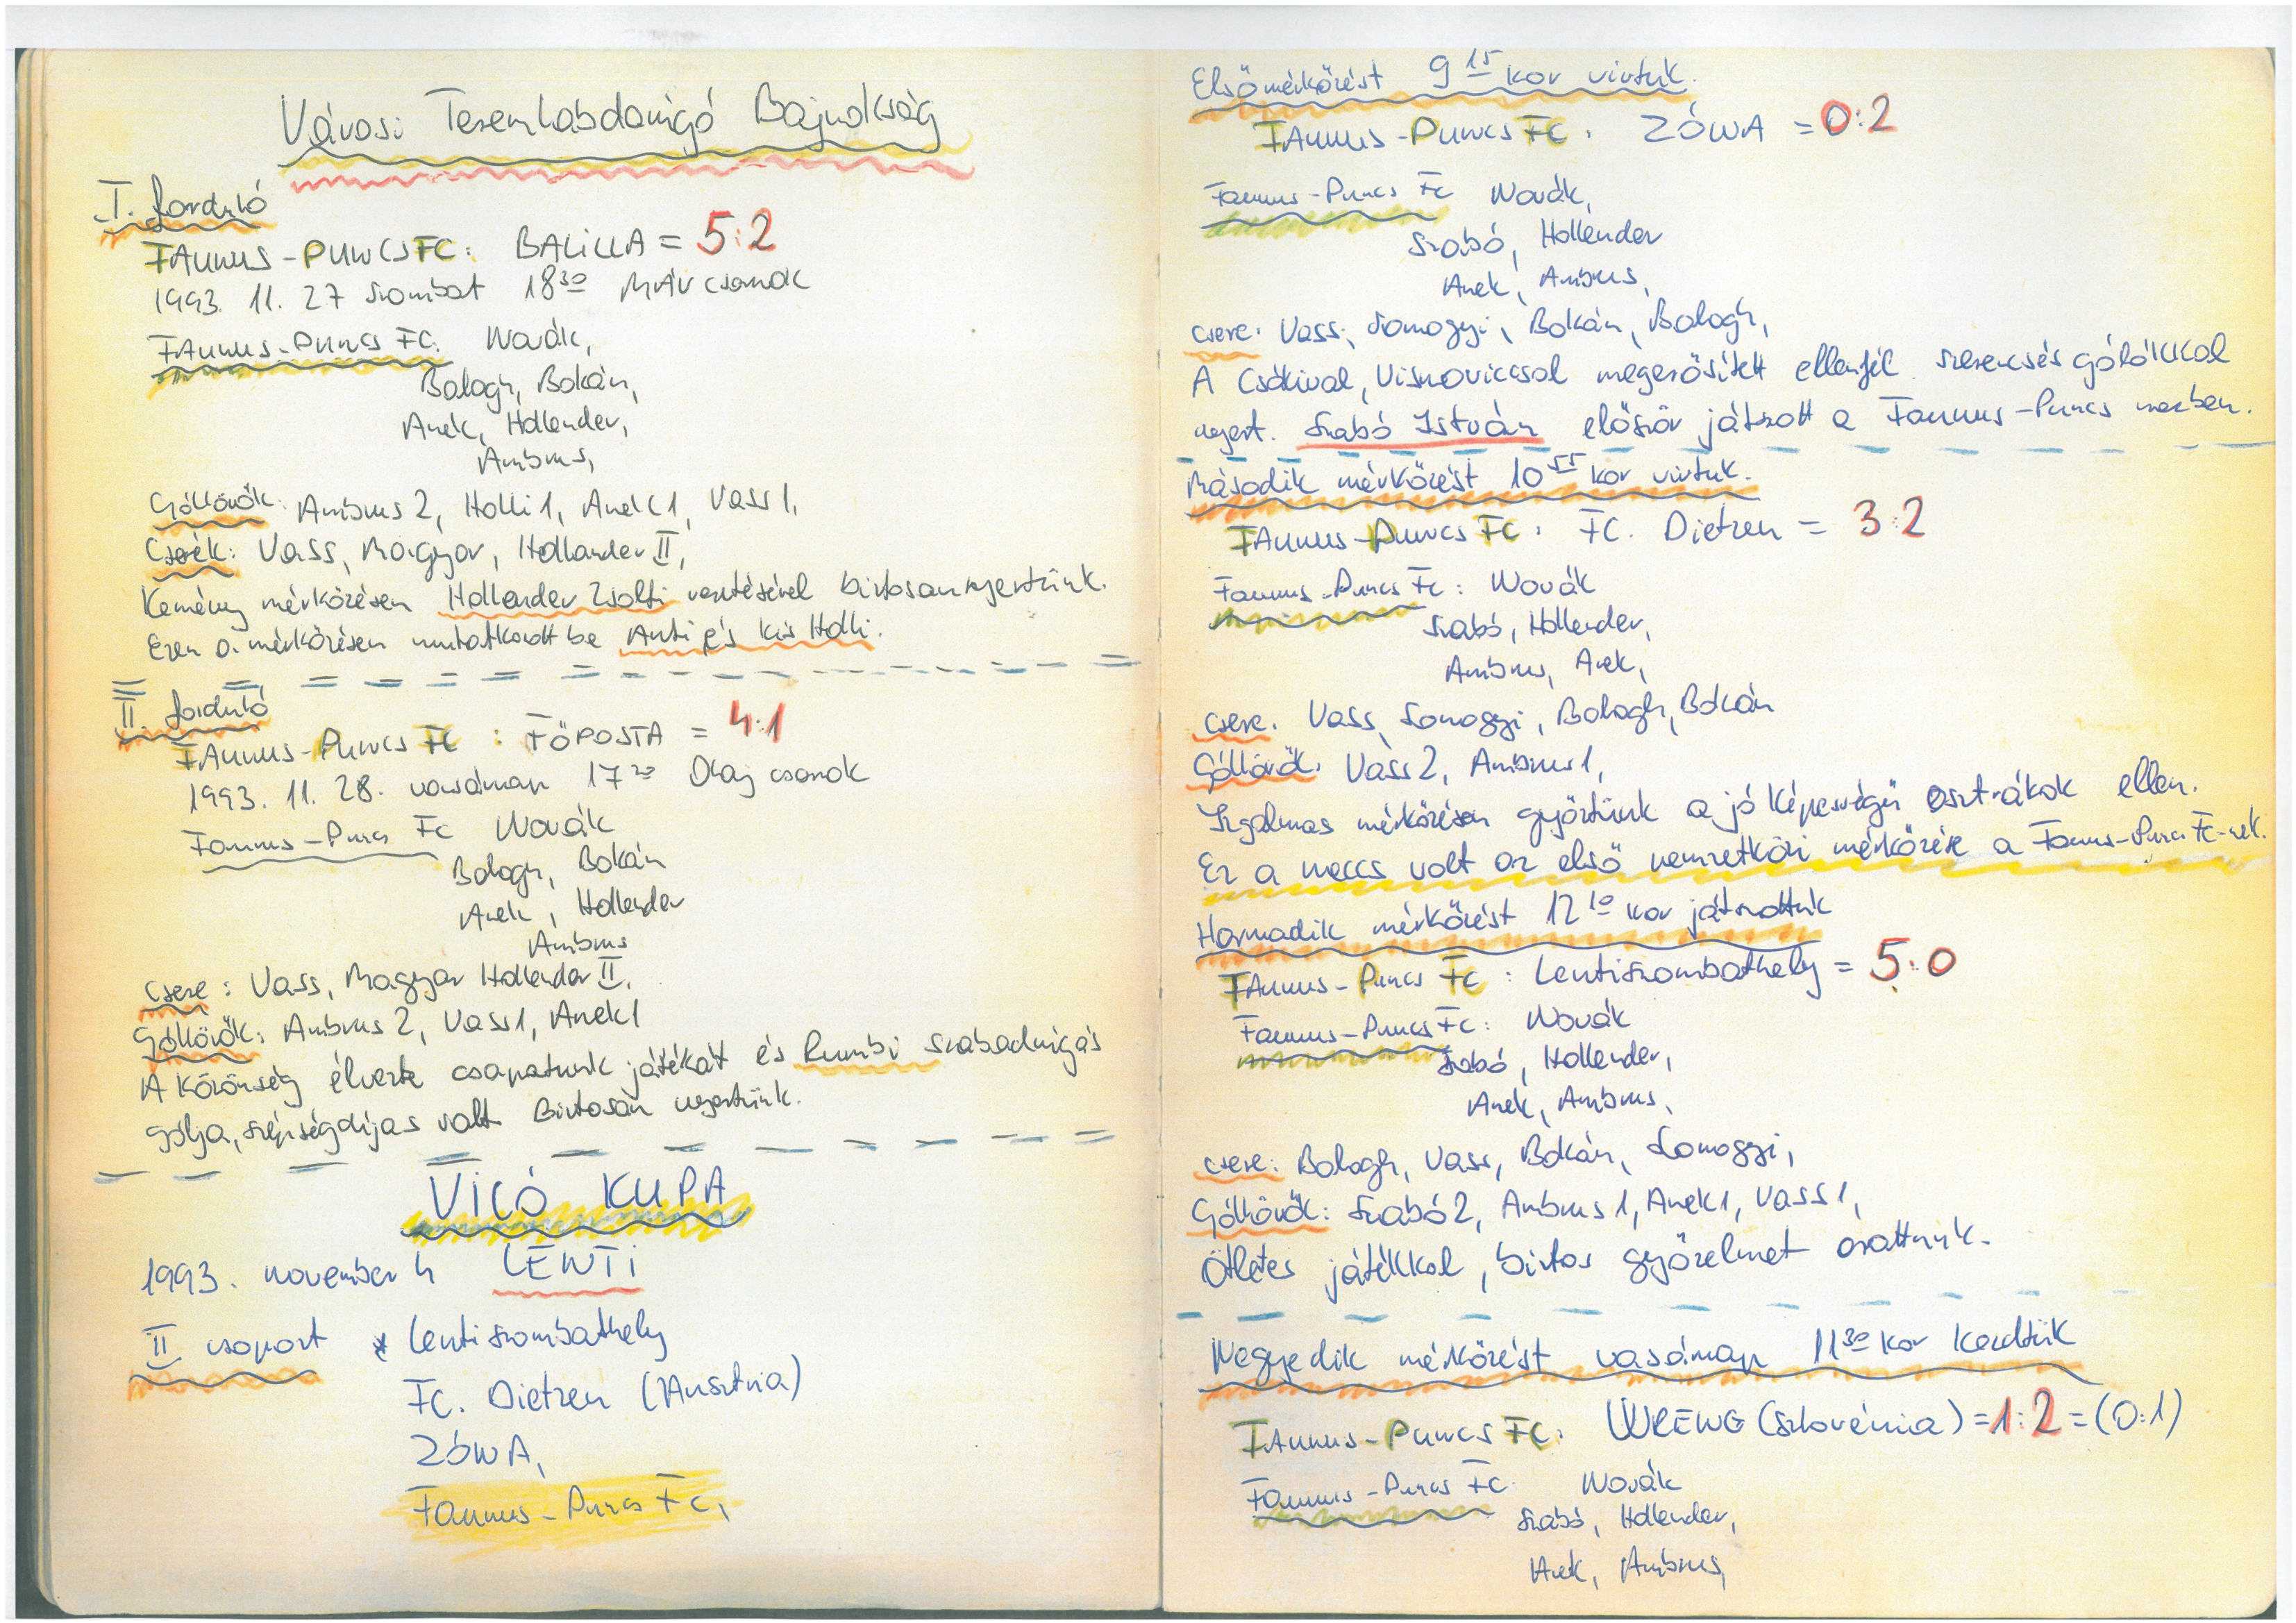 Városi Teremlabdarúgó Bajnokság
I. forduló
FAUNUS-PUNCS FC: BALILLA = 5:2
1993. 11. 27 szombat 18 30 MÁV csarnok
FAUNUS-PUNCS FC: Novák,
Balogh, Bokán,
Anek, Hollender,
Ambrus,
Góllövők: Ambrus 2, Holli 1, Anek 1, Vass 1,
Cserék: Vass, Magyar, Hollender II,
Kemény mérkőzésen Hollender Zsolti vezetésével biztosan nyertünk.
Ezen a mérkőzésen mutatkozott be Anti és kis Holli.
II. forduló
FAUNUS-PUNCS FC : FŐPOSTA = 4:1
1993. 11. 28. vasárnap 17 20 Olaj csarnok
Faunus-Puncs FC Novák
Balogh, Bokán
Anek, Hollender
Ambrus
Csere: Vass, Magyar Hollender II.
Góllövők: Ambrus 2, Vass 1, Anek 1
A közönség élvezte csapatunk játékát és Rumbi szabadrúgás
gólja, szépségdíjas volt. Biztosan nyertünk.
VICÓ KUPA
1993. november 4 LENTI
II csoport * Lentiszombathely
FC. Dietzen (Ausztria)
ZÓWA,
Faunus-Puncs FC,
Első mérkőzést 9 15 kor vívtuk.
FAUNUS-PUNCS FC : ZÓWA = 0:2
Faunus-Puncs FC Novák,
Szabó, Hollender
Anek, Ambrus,
csere: Vass, Somogyi, Bokán, Balogh,
A Csókival, Visnoviccsal megerősített ellenfél szerencsés gólokkal
nyert. Szabó István először játszott a Faunus-Puncs mezben.
Második mérkőzést 10 55 kor vívtuk.
FAUNUS-PUNCS FC : FC. Dietzen = 3:2
Faunus-Puncs FC: Novák
Szabó, Hollender,
Ambrus, Anek,
csere. Vass, Somogyi, Balogh, Bokán
Góllövők: Vass 2, Ambrus 1,
Izgalmas mérkőzésen győztünk a jó képességű osztrákok ellen.
Ez a meccs volt az első nemzetközi mérkőzése a Faunus-Puncs FC-nek.
Harmadik mérkőzést 12 10 kor játszottuk
FAUNUS-PUNCS FC : Lentiszombathely = 5:0
Faunus-Puncs FC: Novák
Szabó, Hollender,
Anek, Ambrus,
csere: Balogh, Vass, Bokán, Somogyi,
Góllövők: Szabó 2, Ambrus 1, Anek 1, Vass 1,
Ötletes játékkal, biztos győzelmet arattunk.
Negyedik mérkőzést vasárnap 11 30 kor kezdtük
FAUNUS-PUNCS FC: (Szlovénia) = 1:2 = (0:1)
Faunus-Puncs FC. Novák
Szabó, Hollender,
Anek, Ambrus,